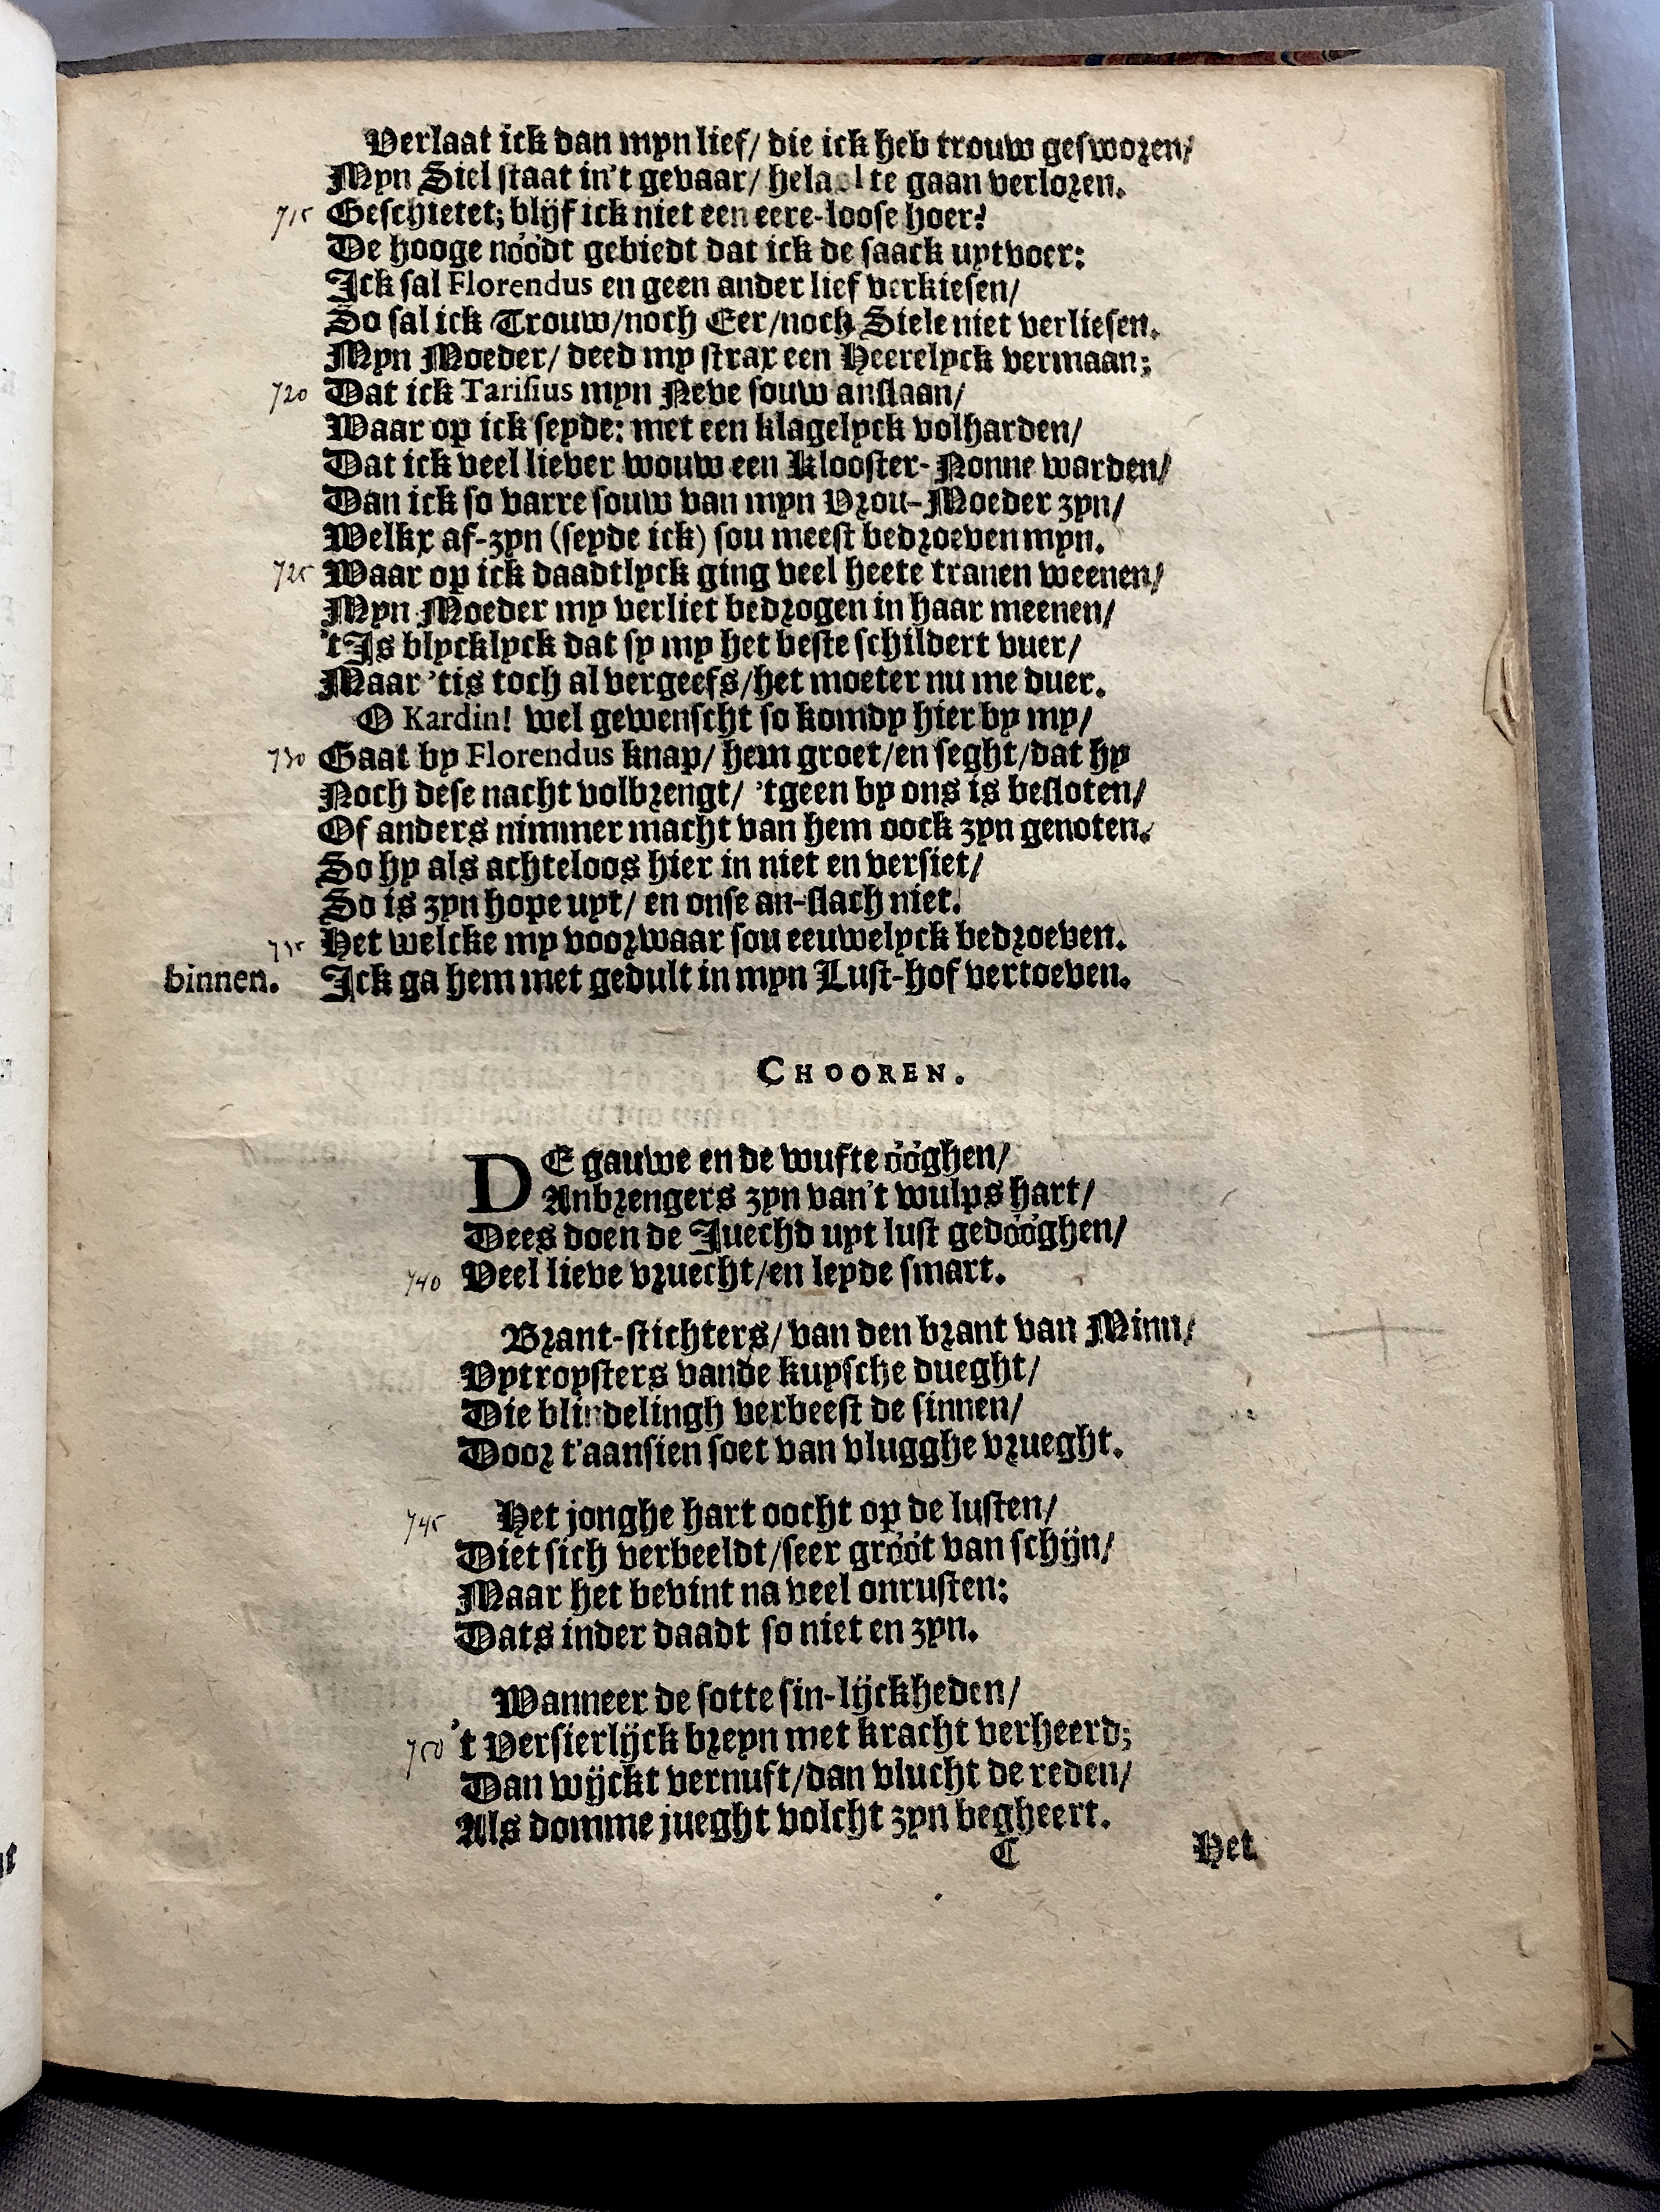 Verlaat ick dan myn lief/ die ick heb trouw gesworen/
Myn Siel staat in't gevaar/ te gaan verloren.
715 Geschietet; blijf ick niet een eere-loose hoer?
De hooge nóódt gebiedt dat ick de saack uytvoer:
Ick sal Florendus en geen ander lief verkiesen/
So sal ick Trouw/noch Eer/noch Siele niet verliesen.
Myn Moeder/ deed my strax een Heerelyck vermaan;
720 Dat ick Tarisius myn Neve souw anslaan/
Waar op ick seyde: met een klagelyck volharden/
Dat ick veel liever wouw een Klooster-Nonne warden/
Dan ick so varre souw van myn Vrou-Moeder zyn/
Welkx af-zyn (seyde ick) sou meest bedroeven myn.
725 Waar op ick daadtlyck ging veel heete tranen weenen/
Myn Moeder my verliet bedrogen in haar meenen/
'tIs blycklyck dat sy my het beste schildert vuer/
Maar 'tis toch al vergeefs/het moeter nu me duer.
O Kardin! wel gewenscht so komdy hier by my/
730 Gaat by Florendus knap/ hem groet/en seght/dat hy
Noch dese nacht volbrengt/ 'tgeen by ons is besloten/
Of anders nimmer macht van hem oock zyn genoten.
So hy als achteloos hier in niet en versiet/
So is zyn hope uyt/ en onse an-slach niet.
735 Het welcke my voorwaar sou eeuwelyck bedroeven.
binnen. Ick ga hem met gedult in myn Lust-hof vertoeven.
CHOOREN.
DE gauwe en de wufte óóghen/
Anbrengers zyn van't wulps hart/
Dees doen de Juechd uyt lust gedóóghen/
740 Veel lieve vruecht/en leyde smart.
Brant-stichters/ van den brant van Minn/
Uytroysters vande kuysche dueght/
Die blindelingh verbeest de sinnen/
Door t'aansien soet van vlugghe vrueght.
745 Het jonghe hart oocht op de lusten/
Diet sich verbeeldt/seer gróót van schijn/
Maar het bevint na veel onrusten:
Dats inder daadt so niet en zyn.
Wanneer de sotte sin-lijckheden/
750 't Versierlijck breyn met kracht verheerd;
Dan wijckt vernuft/dan vlucht de reden/
Als domme jueght volcht zyn begheert.
C Het